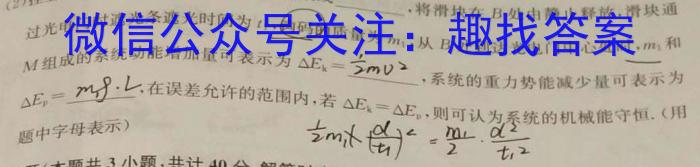 将滑块在B处由静止释放,滑块通
过光电
遮光条遮光时间为t
的质量为m₁,从B
m₁和
微信公众号关注:趣找答案
M组成的系统动能增加量可表示为ΔEₖ=½mv²,系统的重力势能减少量可表示为
ΔEₚ=mg·L.在误差允许的范围内,若ΔEₖ=ΔEₚ,则可认为系统的机械能守恒.(用
题中字母表示)
½m₁(d/t₁)²=m₁/2·d²/t₁²
本题共3小题,共计40分